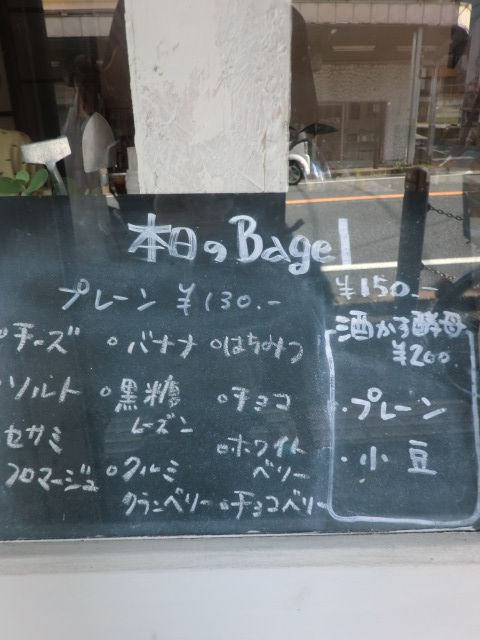 本日のBagel
プレーン ¥130.-
¥150.-
チーズ
ソルト
セサミ
フロマージュ
。バナナ
。黒糖
レーズン
。クルミ
クランベリー
。はちみつ
。チョコ
。ホワイト
ベリー
。チョコベリー
酒かす酵母
¥200
・プレーン
・小豆